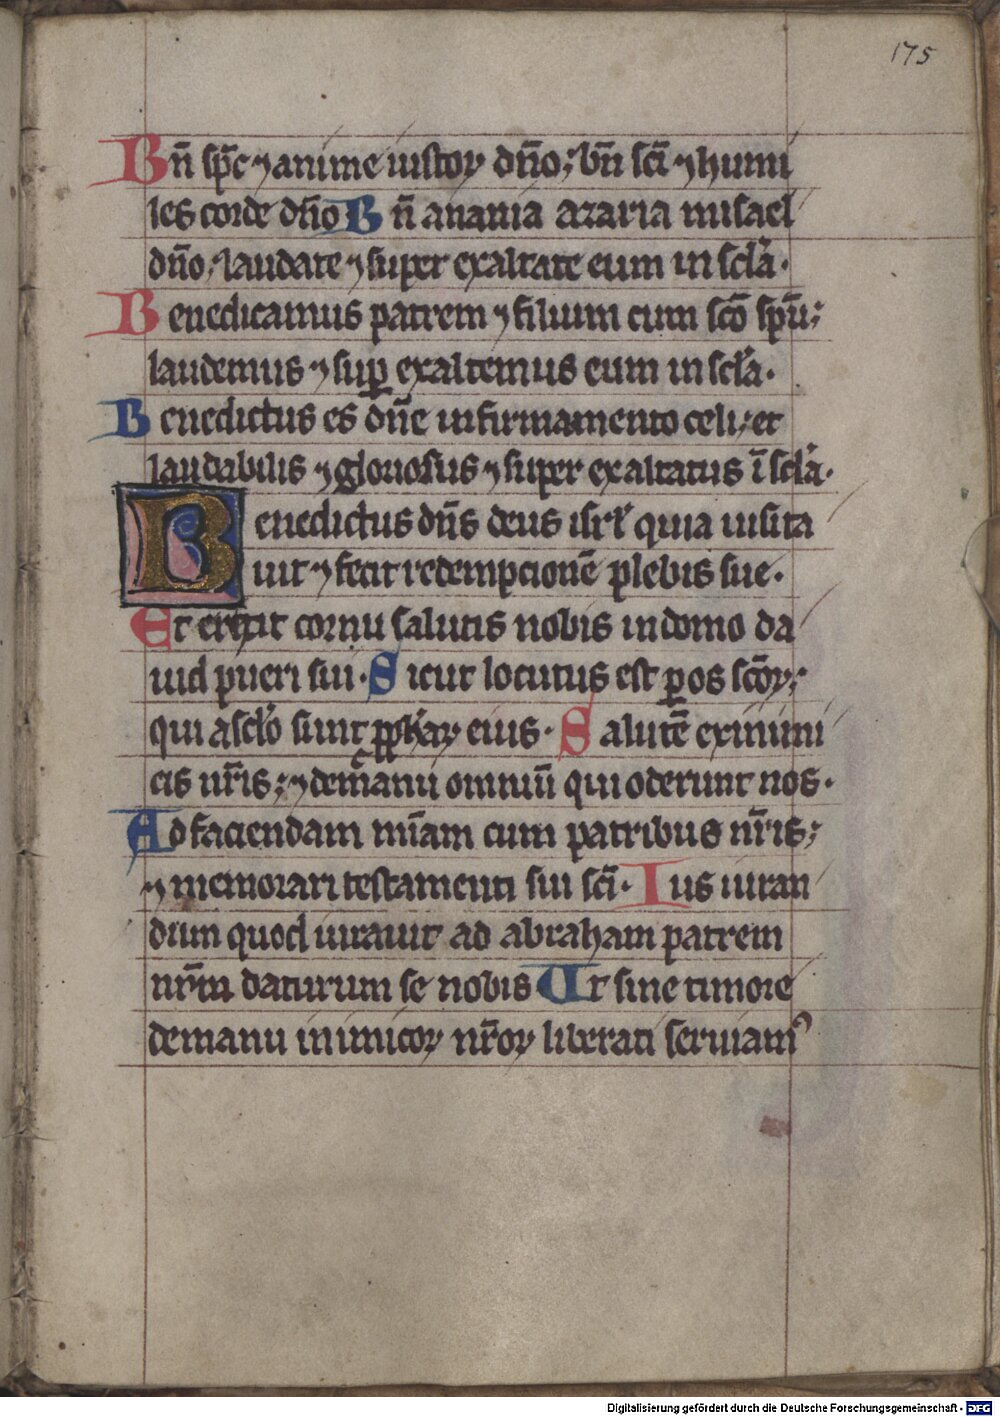 175
Bn̄ sp̄c ⁊ anime iustoꝝ dn̄o; bn̄ sc̄i ⁊ humi
les corde dn̄o Bn̄ anania azaria misael
dn̄o; laudate ⁊ super exaltate eum in scl̄a.
Benedicamus patrem ⁊ filium cum sc̄o sp̄u;
laudemus ⁊ suꝑ exaltemus eum in scl̄a.
Benedictus es dn̄e in firmamento celi; et
laudabilis ⁊ gloriosus ⁊ super exaltatus ī scl̄a.
Benedictus dn̄s deus isrl̄ quia uisita
uit ⁊ fecit redempcionē plebis sue.
Et erexit cornu salutis nobis in domo da
uid pueri sui. Sicut locutus est ꝑ os sc̄oꝝ;
qui a scl̄o sunt ꝓph̄aꝝ eius. Salutē ex inimi
cis nr̄is; ⁊ de manu omniū qui oderunt nos.
Ad faciendam mīam cum patribus nr̄is;
⁊ memorari testamenti sui sc̄i. Ius iuran
dum quod iurauit ad abraham patrem
nr̄m daturum se nobis Ut sine timore
de manu inimicoꝝ nr̄oꝝ liberati seruiamꝰ
Digitalisierung gefördert durch die Deutsche Forschungsgemeinschaft - DFG